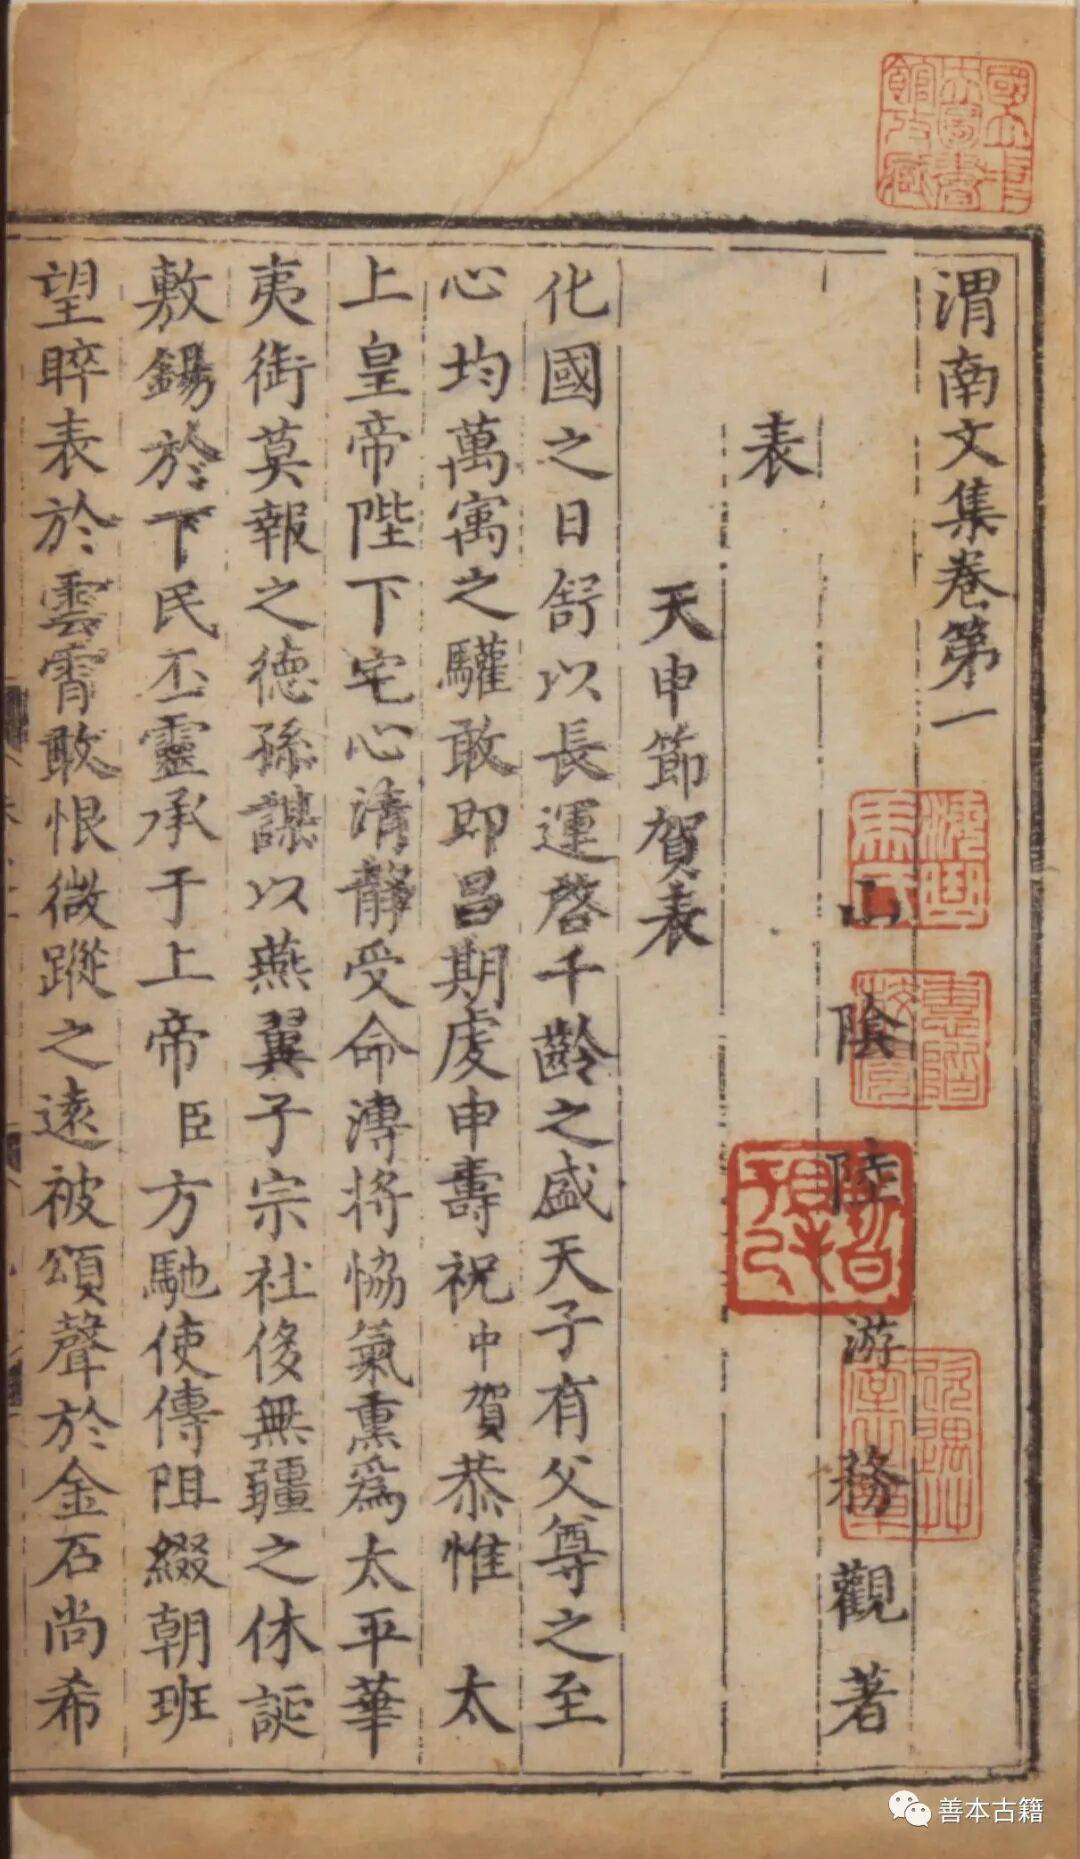 渭南文集卷第一
山陰陸游務觀著
表
天申節賀表
化國之日舒以長運啓千齡之盛天子有父尊之至
心均萬寓之驩敢即昌期虔申壽祝中賀恭惟 太
上皇帝陛下宅心清靜受命溥將恊氣熏爲太平華
夷銜莫報之德孫謀以燕翼子宗社侈無疆之休誕
敷錫於下民丕靈承于上帝臣方馳使傳阻綴朝班
望睟表於雲霄敢恨微蹤之遠被頌聲於金石尚希
善本古籍